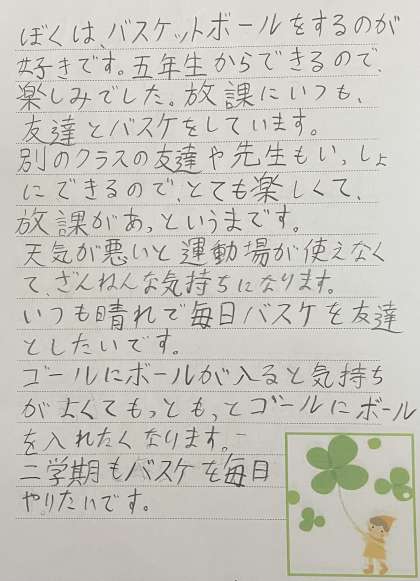 ぼくは、バスケットボールをするのが
好きです。五年生からできるので、
楽しみでした。放課にいつも、
友達とバスケをしています。
別のクラスの友達や先生もいっしょ
にできるので、とても楽しくて、
放課があっというまです。
天気が悪いと運動場が使えなく
て、ざんねんな気持ちになります。
いつも晴れで毎日バスケを友達
としたいです。
ゴールにボールが入ると気持ち
がよくてもっともっとゴールにボール
を入れたくなります。
二学期もバスケを毎日
やりたいです。